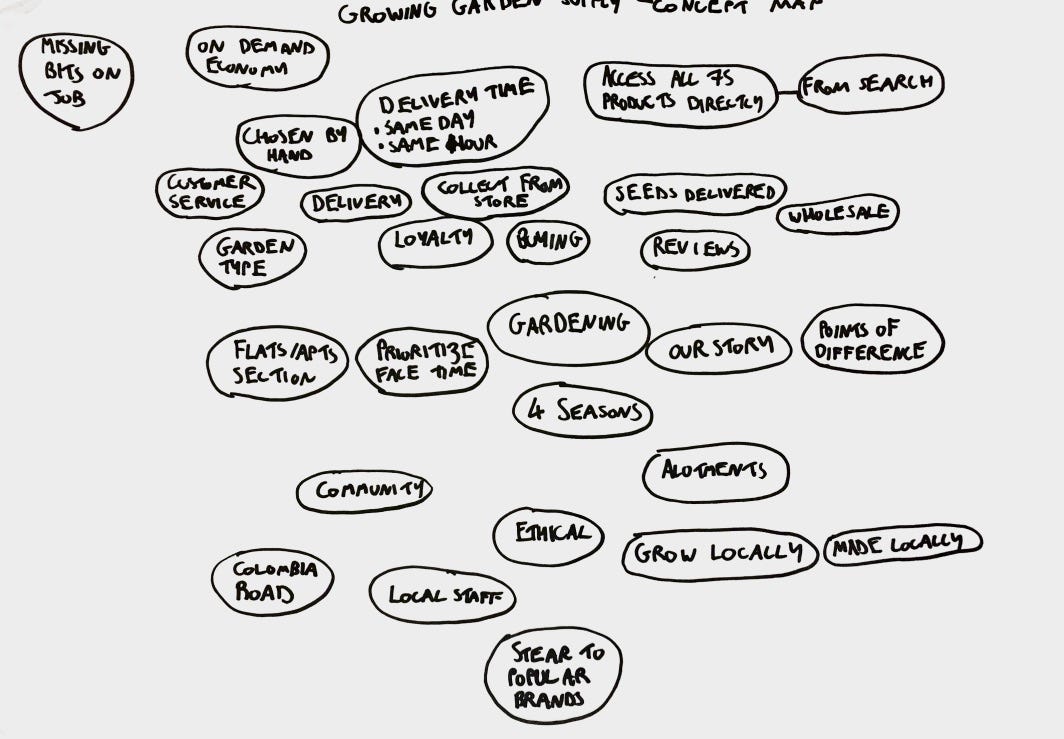 GROWING GARDEN SUPPLY - CONCEPT MAP
MISSING
BITS ON
JOB
ON DEMAND
ECONOMY
DELIVERY TIME
• SAME DAY
• SAME HOUR
ACCESS ALL 75
PRODUCTS DIRECTLY
FROM SEARCH
CHOSEN BY
HAND
CUSTOMER
SERVICE
DELIVERY
COLLECT FROM
STORE
SEEDS DELIVERED
WHOLESALE
GARDEN
TYPE
LOYALTY
REVIEWS
GARDENING
FLATS/APTS
SECTION
PRIORITIZE
FACE TIME
OUR STORY
POINTS OF
DIFFERENCE
4 SEASONS
ALOTMENTS
COMMUNITY
ETHICAL
GROW LOCALLY
MADE LOCALLY
COLOMBIA
ROAD
LOCAL STAFF
STEAR TO
POPULAR
BRANDS